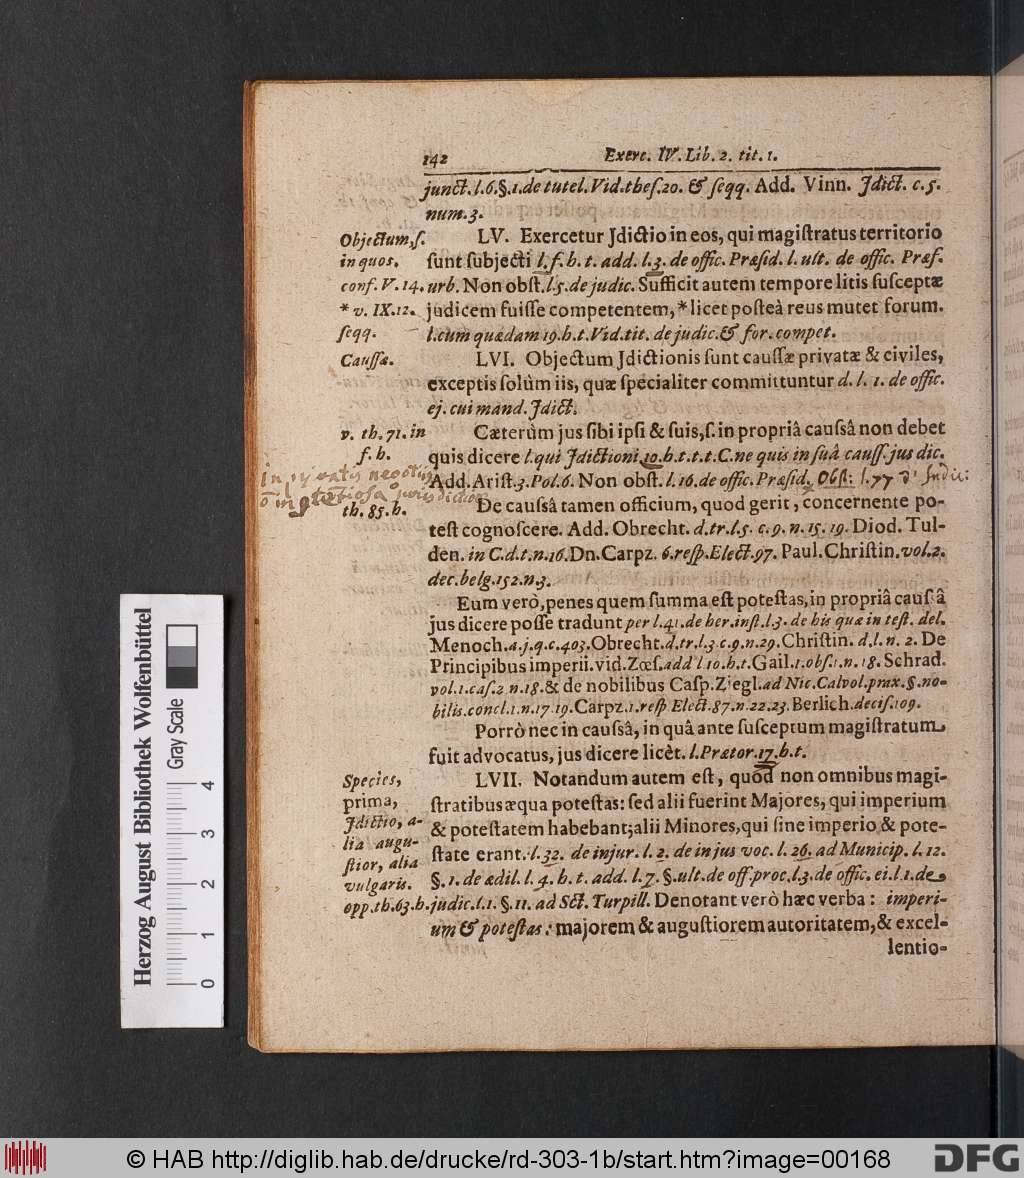 142 Exerc. IV. Lib. 2. tit. 1.
junct. l. 6. §. 1. de tutel. Vid. thes. 20. & seqq. Add. Vinn. Jdict. c. 5.
num. 3.
Objectum, s.
in quos.
conf. V. 14.
* v. IX. 12.
seqq.
LV. Exercetur Jdictio in eos, qui magiſtratus territorio
ſunt ſubjecti l. f. h. t. add. l. 3. de offic. Præſid. l. ult. de offic. Præf.
urb. Non obſt. l. 5. de judic. Sufficit autem tempore litis ſuſceptæ
judicem fuiſſe competentem, * licet poſteà reus mutet forum.
l. cum quædam 19. h. t. Vid. tit. de judic. & for. compet.
Cauſſæ.
LVI. Objectum Jdictionis ſunt cauſſæ privatæ & civiles,
exceptis ſolùm iis, quæ ſpecialiter committuntur d. l. 1. de offic.
ej. cui mand. Jdict.
v. th. 71. in
f. h.
Cæterùm jus ſibi ipſi & ſuis, ſ. in propriâ cauſsâ non debet
quis dicere l. qui Jdictioni 10. h. t. t. t. C. ne quis in ſuâ cauſſ. jus dic.
Add. Ariſt. 3. Pol. 6. Non obſt. l. 16. de offic. Præſid. Obſt: l. 77 d' Judic:
In privatis negotiis
jurisdictione
th. 85. h.
De cauſsâ tamen officium, quod gerit, concernente po-
teſt cognoſcere. Add. Obrecht. d. tr. l. 5. c. 9. n. 15. 19. Diod. Tul-
den. in C. d. t. n. 16. Dn. Carpz. 6. reſp. Elect. 97. Paul. Chriſtin. vol. 2.
dec. belg. 152. n. 3.
Eum verò, penes quem ſumma eſt poteſtas, in propriâ cauſ â
jus dicere poſſe tradunt per l. 41. de her. inſt. l. 3. de his quæ in teſt. del.
Menoch. a. j. q. c. 403. Obrecht. d. tr. l. 3. c. 9. n. 29. Chriſtin. d. l. n. 2. De
Principibus imperii. vid. Zœſ. add l 10. h. t. Gail. 1. obſ. 1. n. 18. Schrad.
vol. 1. caſ. 2. n. 18. & de nobilibus Caſp. Ziegl. ad Nic. Calvol. prax. §. no-
bilis. concl. 1. n. 17. 19. Carpz. 1. reſp Elect. 87. n. 22. 23. Berlich. deciſ. 109.
Porrò nec in cauſsâ, in quâ ante ſuſceptum magiſtratum
fuit advocatus, jus dicere licèt. l. Prætor. 17. h. t.
Species,
prima,
Jdictio, a-
lia augu-
ſtior, alia
vulgaris.
opp. th. 63. h.
LVII. Notandum autem eſt, quòd non omnibus magi-
ſtratibus æqua poteſtas: ſed alii fuerint Majores, qui imperium
& poteſtatem habebant; alii Minores, qui ſine imperio & pote-
ſtate erant. l. 32. de injur. l. 2. de in jus voc. l. 26. ad Municip. l. 12.
§. 1. de ædil. l. 4. h. t. add. l. 7. §. ult. de off. proc. l. 3. de offic. ei. l. 1. de
judic. l. 1. §. 11. ad Sct. Turpill. Denotant verò hæc verba: imperi-
um & poteſtas: majorem & auguſtiorem autoritatem, & excel-
lentio-
Herzog August Bibliothek Wolfenbüttel
Gray Scale
0 1 2 3 4
© HAB http://diglib.hab.de/drucke/rd-303-1b/start.htm?image=00168
DFG